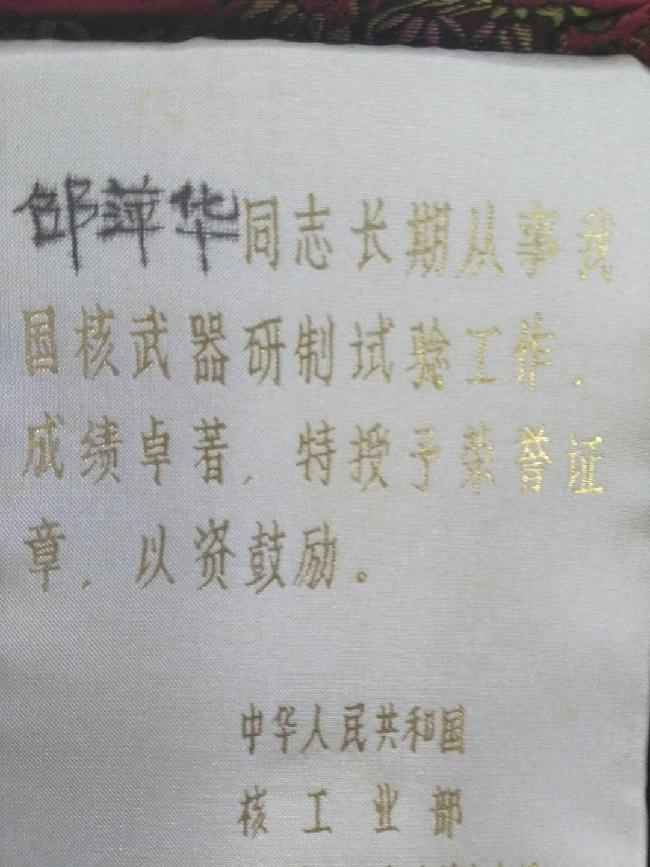 邰萍华同志长期从事我
国核武器研制试验工作，
成绩卓著，特授予荣誉证
章，以资鼓励。
中华人民共和国
核工业部